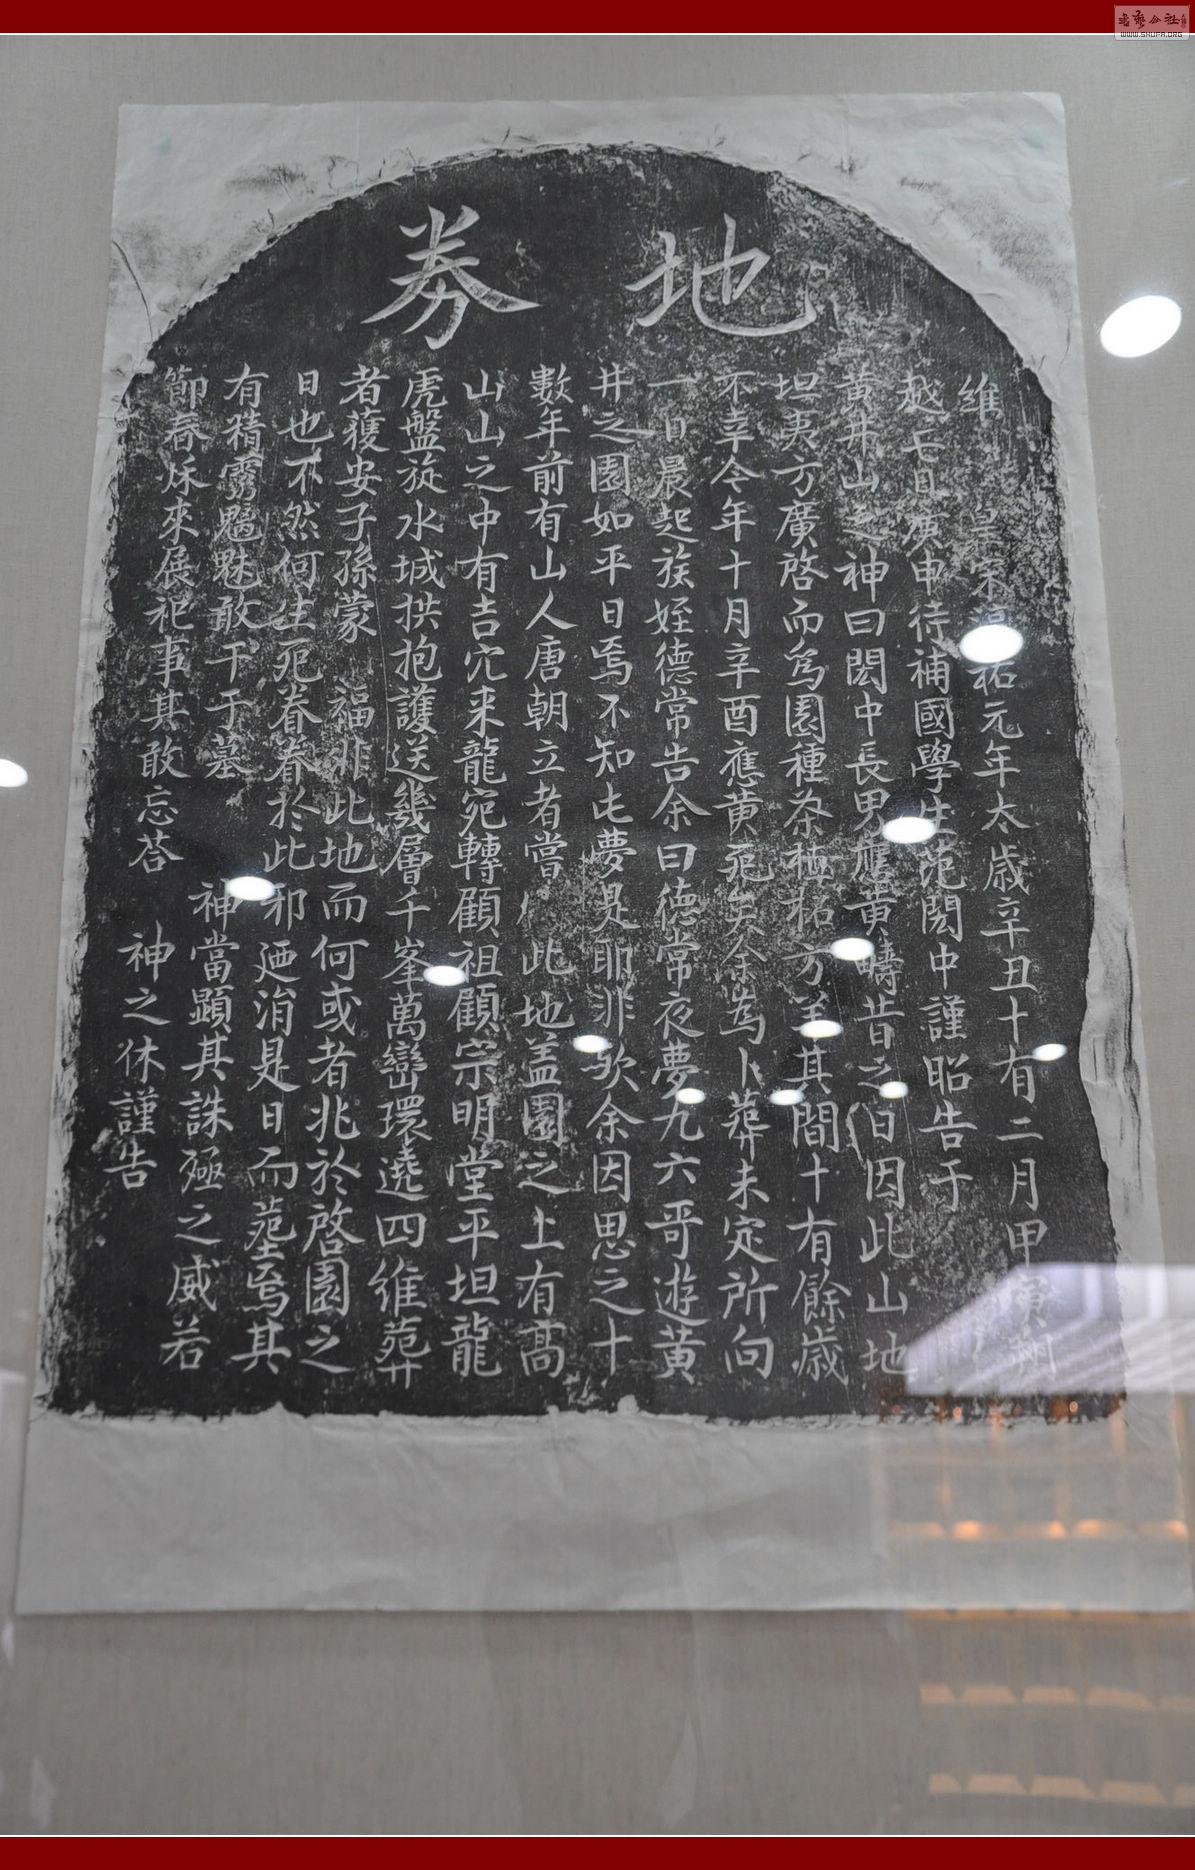 地券
維 皇宋淳祐元年太歲辛丑十有二月甲寅朔
越七日庚申待補國學生范閎中謹昭告于
黄井山之神曰閎中長男應黄疇昔之日因此山地
坦夷方廣啓而為園種茶植柘方羊其間十有餘歲
不幸今年十月辛酉應黄死矣余為卜葬未定所向
一日晨起族姪德常告余曰德常夜夢九六哥遊黄
井之園如平日焉不知此夢是耶非歟余因思之十
數年前有山人唐朝立者嘗 此地盖園之上有高
山山之中有吉穴来龍宛轉顧祖顧宗明堂平坦龍
虎盤旋水城拱抱護送幾層千峯萬巒環遶四維葬
者獲安子孫蒙 福非此地而何或者兆於啓園之
日也不然何生死眷眷於此邪廼涓是日而塟焉其
有精靈魍魅敢干于墓 神當顯其誅殛之威若
節春秌來展祀事其敢忘荅 神之休謹告
WWW.SHUFA.ORG